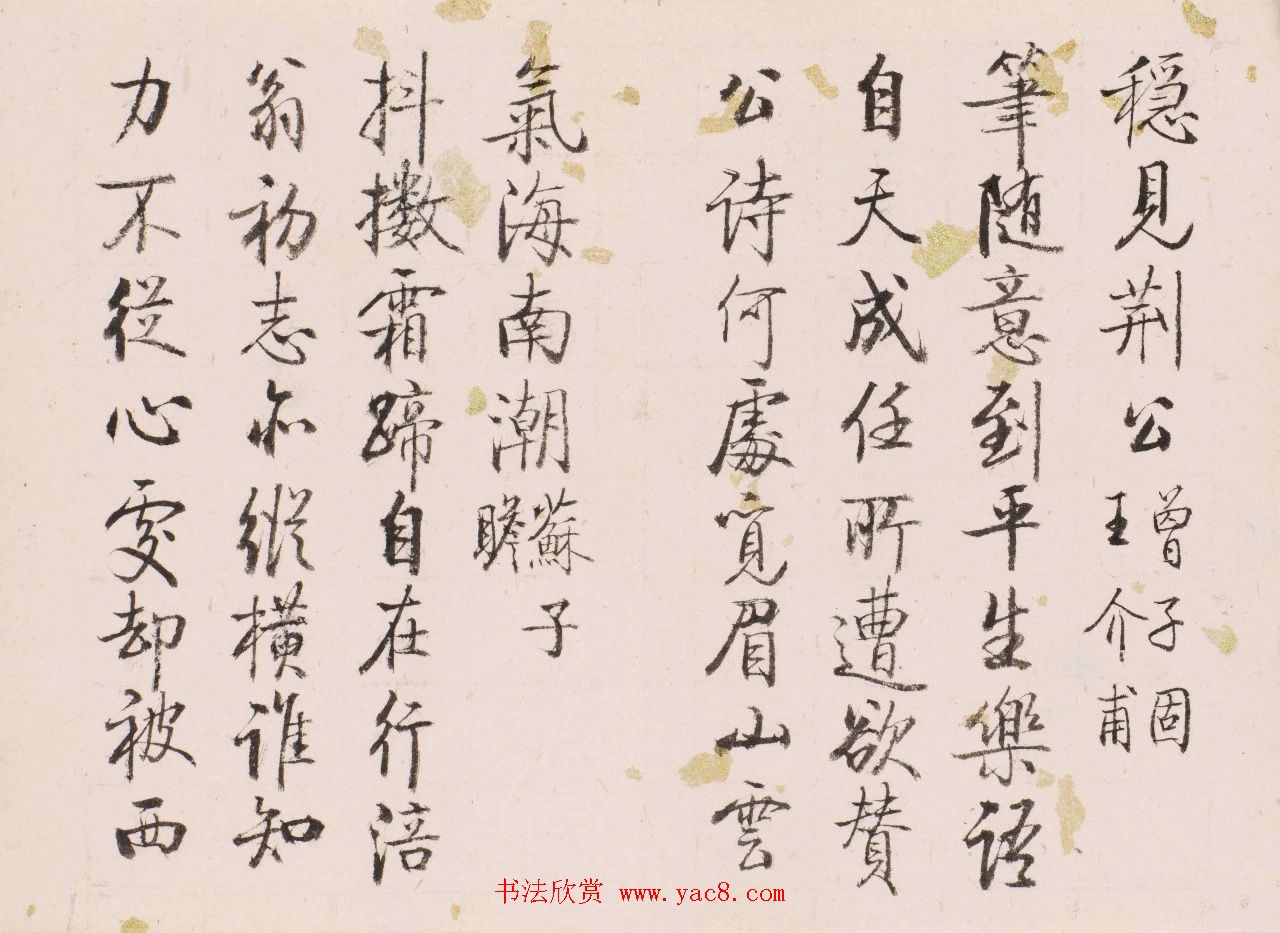 穩見荆公 曾子固 王介甫
筆随意到平生樂語
自天成任所遭欲賛
公詩何處覓眉山雲
氣海南潮 蘇子瞻
抖擻霜蹄自在行涪
翁初志亦縱橫誰知
力不從心處却被西
书法欣赏 www.yac8.com